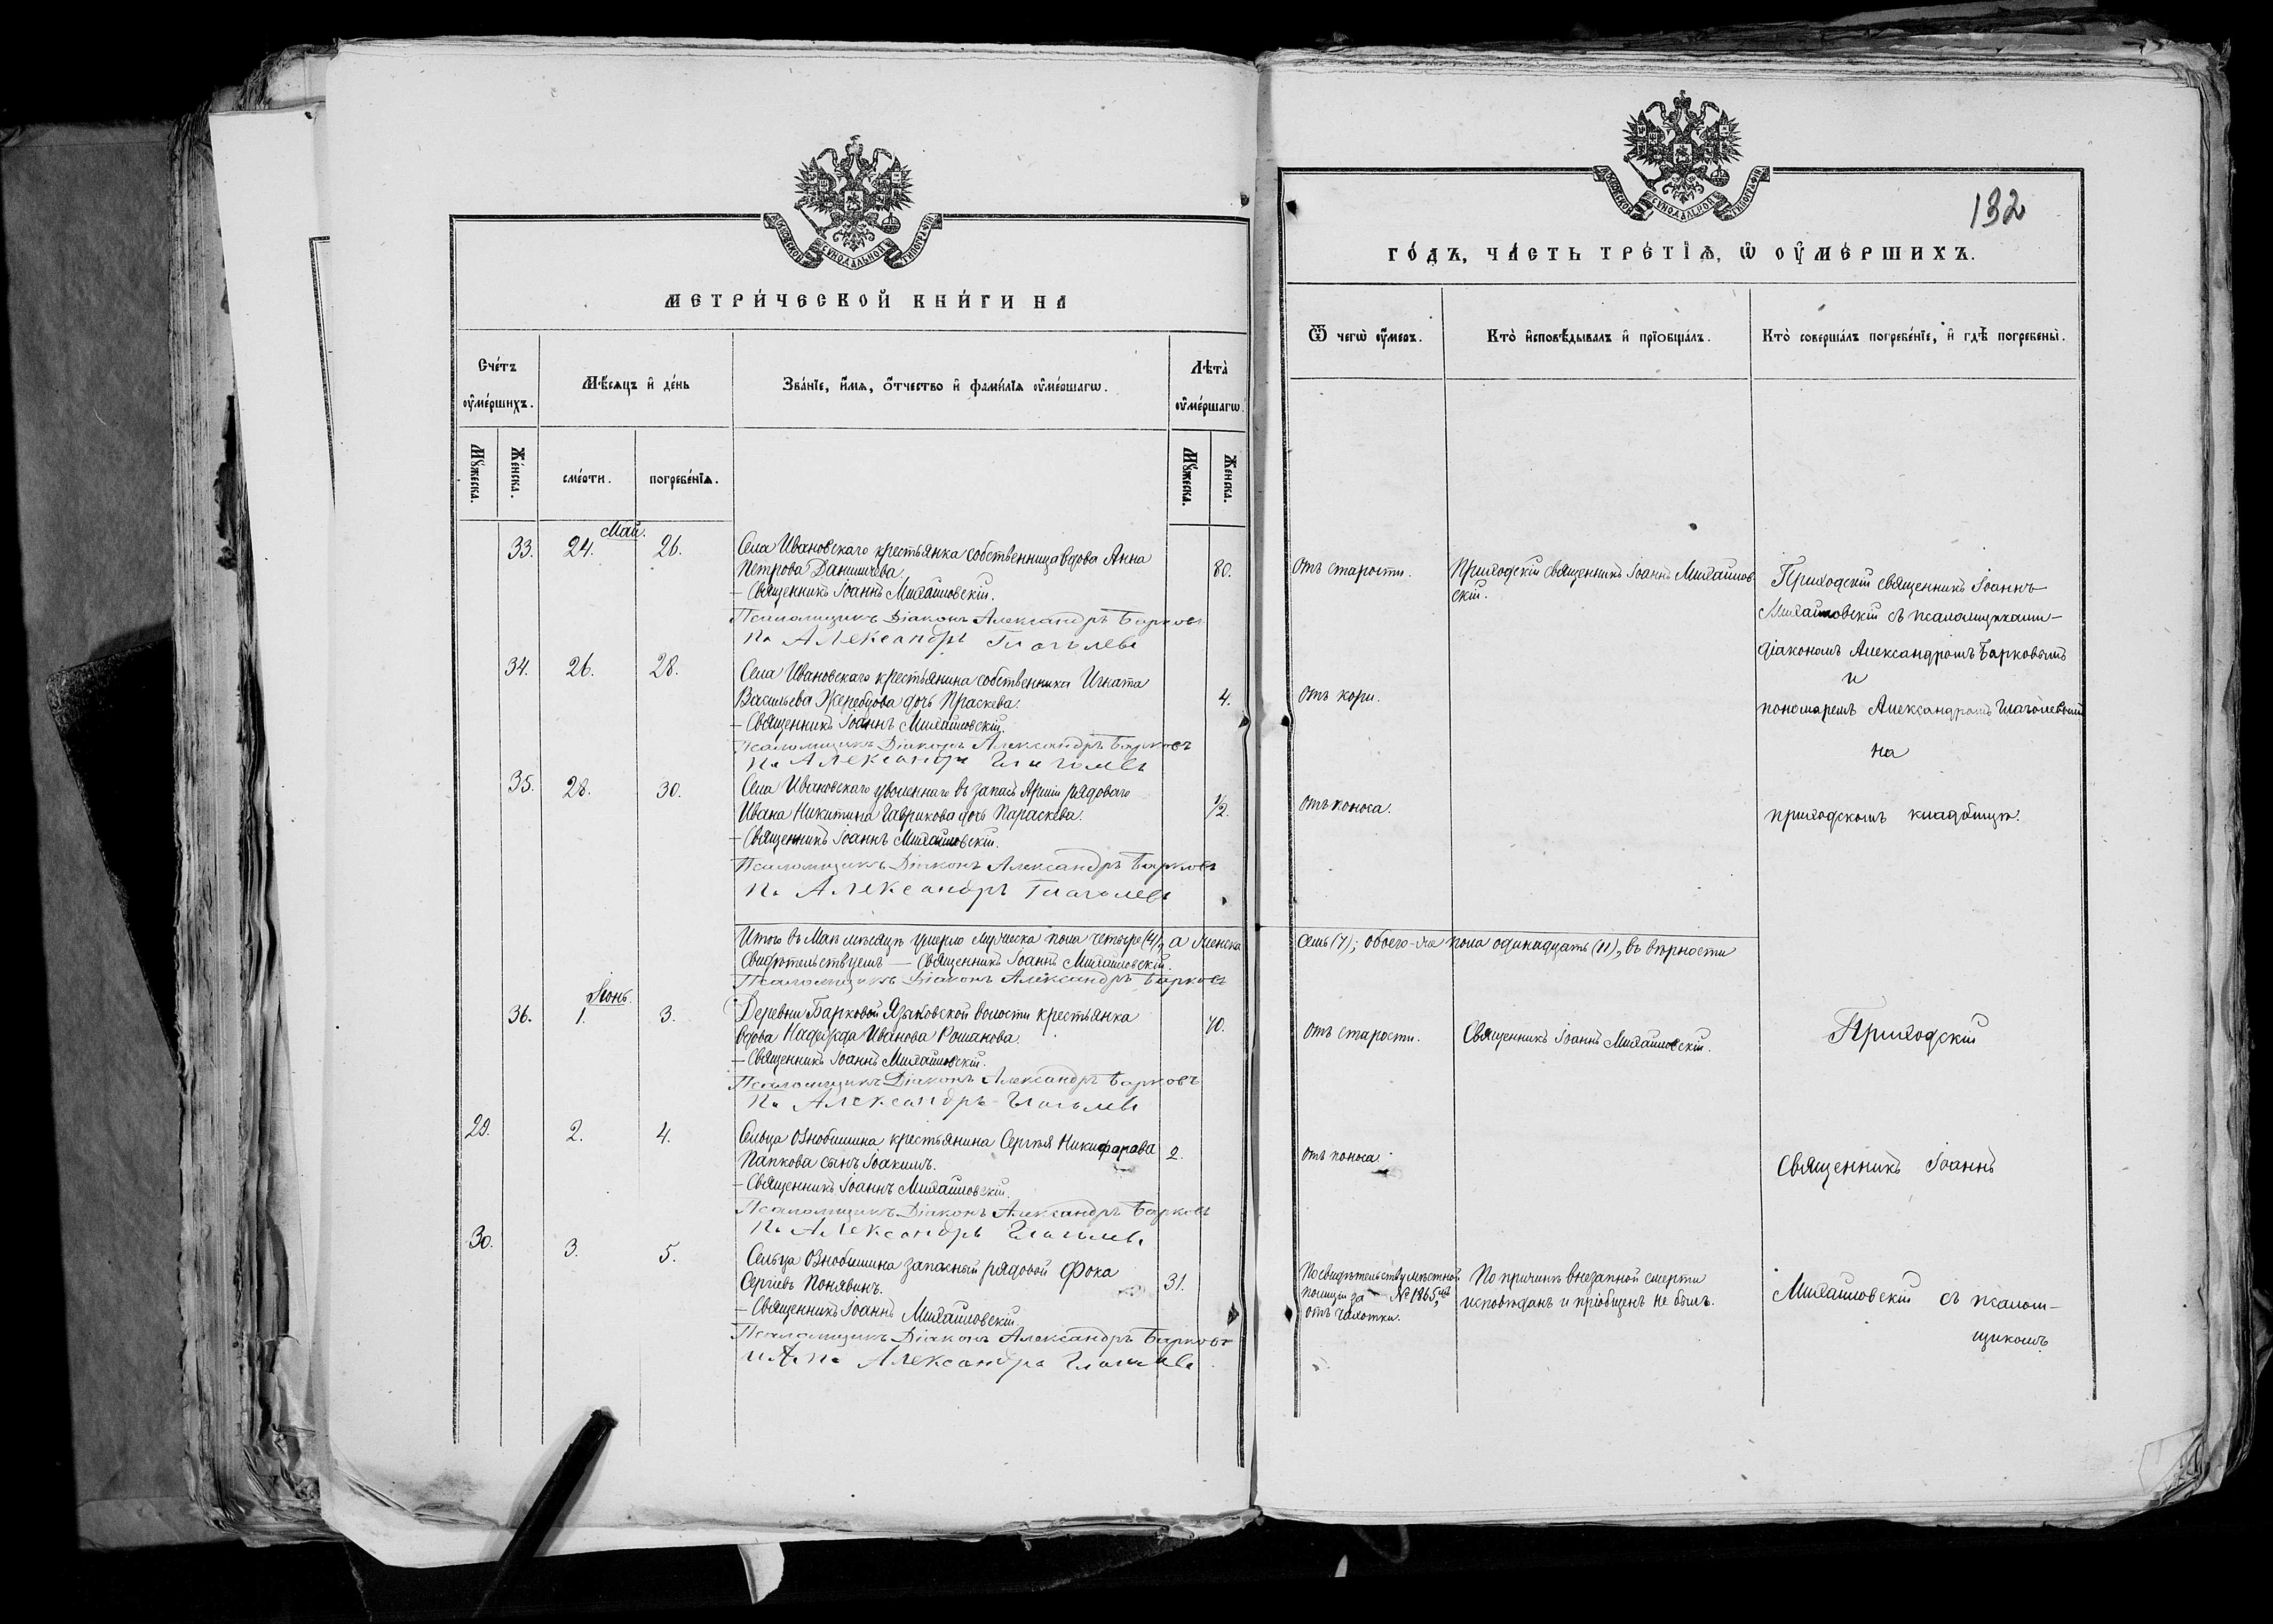 МОСКОВСКОЙ СѴНОДАЛЬНОЙ ТИПОГРАФІИ
МЕТРИ́ЧЕСКОЙ КНИ́ГИ НА
Сче́тъ ᲂу҆ме́ршихъ.
Мѣ́сяцъ и҆ де́нь
Зва́нїе, и҆́мѧ, ѻ҆́тчество и҆ фами́лїѧ ᲂу҆ме́ршагѡ.
Лѣ́та ᲂу҆ме́ршагѡ.
Мꙋ́жеска.
Же́нска.
сме́рти.
погребе́нїѧ.
Мꙋ́жеска.
Же́нска.
Май.
33. 24. 26. Села Ивановскаго крестьянка собственница вдова Анна
Петрова Данишчева. 80.
– Священникъ Іоаннъ Михайловскій.
Псаломщикъ Діаконъ Александръ Барковъ
Пс Александръ Глаголевъ
34. 26. 28. Села Ивановскаго крестьянина собственника Игната
Васильева Жеребцова дочь Праскева. 4.
– Священникъ Іоаннъ Михайловскій.
Псаломщикъ Діаконъ Александръ Барковъ
Пс Александръ Глаголевъ
35. 28. 30. Села Ивановскаго уволеннаго въ запасъ Арміи рядоваго
Ивана Никитина Гаврикова дочь Параскева. 1/2.
– Священникъ Іоаннъ Михайловскій.
Псаломщикъ Діаконъ Александръ Барковъ
Пс Александръ Глаголевъ
Итого въ Маѣ мѣсяцѣ умерло мужеска пола четыре (4), а женска
Свидѣтельствуемъ – Священникъ Іоаннъ Михайловскій.
Псаломщикъ Діаконъ Александръ Барковъ
Іюнь.
36. 1. 3. Деревни Барковой Языковской волости крестьянка
вдова Надежда Иванова Романова. 70.
– Священникъ Іоаннъ Михайловскій.
Псаломщикъ Діаконъ Александръ Барковъ
Пс Александръ Глаголевъ
29. 2. 4. Сельца Ознобишина крестьянина Сергѣя Никифарава
Папкова сынъ Іоакимъ. 2.
– Священникъ Іоаннъ Михайловскій.
Псаломщикъ Діаконъ Александръ Барковъ
Пс Александръ Глаголевъ
30. 3. 5. Сельца Ознобишина запасный рядовой Фока
Сергіевъ Понявинъ. 31.
– Священникъ Іоаннъ Михайловскій.
Псаломщикъ Діаконъ Александръ Барковъ
Александръ Глаголевъ
132
МОСКОВСКОЙ СѴНОДАЛЬНОЙ ТИПОГРАФІИ
ГО́ДЪ, ЧА́СТЬ ТРЕ́ТЇѦ, Ѡ҆ ОУ҆МЕ́РШИХЪ.
Ѿ чегѡ̀ ᲂу҆́меръ.
Кто̀ и҆сповѣ́дывалъ и҆ прїобща́лъ.
Кто̀ соверша́лъ погребе́нїе, и҆ гдѣ̀ погребены̀.
Отъ старости.
Приходскій Священникъ Іоаннъ Михайлов-
скій.
Приходскій Священникъ Іоаннъ
Михайловскій съ псаломщиками –
діакономъ Александромъ Барковымъ
и
пономаремъ Александромъ Глаголевымъ
на
приходскомъ кладбищѣ.
Отъ кори.
Отъ поноса.
Семь (7); обоего-же пола одинадцать (11), въ вѣрности
Отъ старости.
Священникъ Іоаннъ Михайловскій.
Приходскій
Отъ поноса.
Священникъ Іоаннъ
По свидѣтельству мѣстной
полиціи за № 1865,
отъ чахотки.
По причинѣ внезапной смерти
исповѣданъ и пріобщенъ не былъ.
Михайловскій съ псалом-
щикомъ